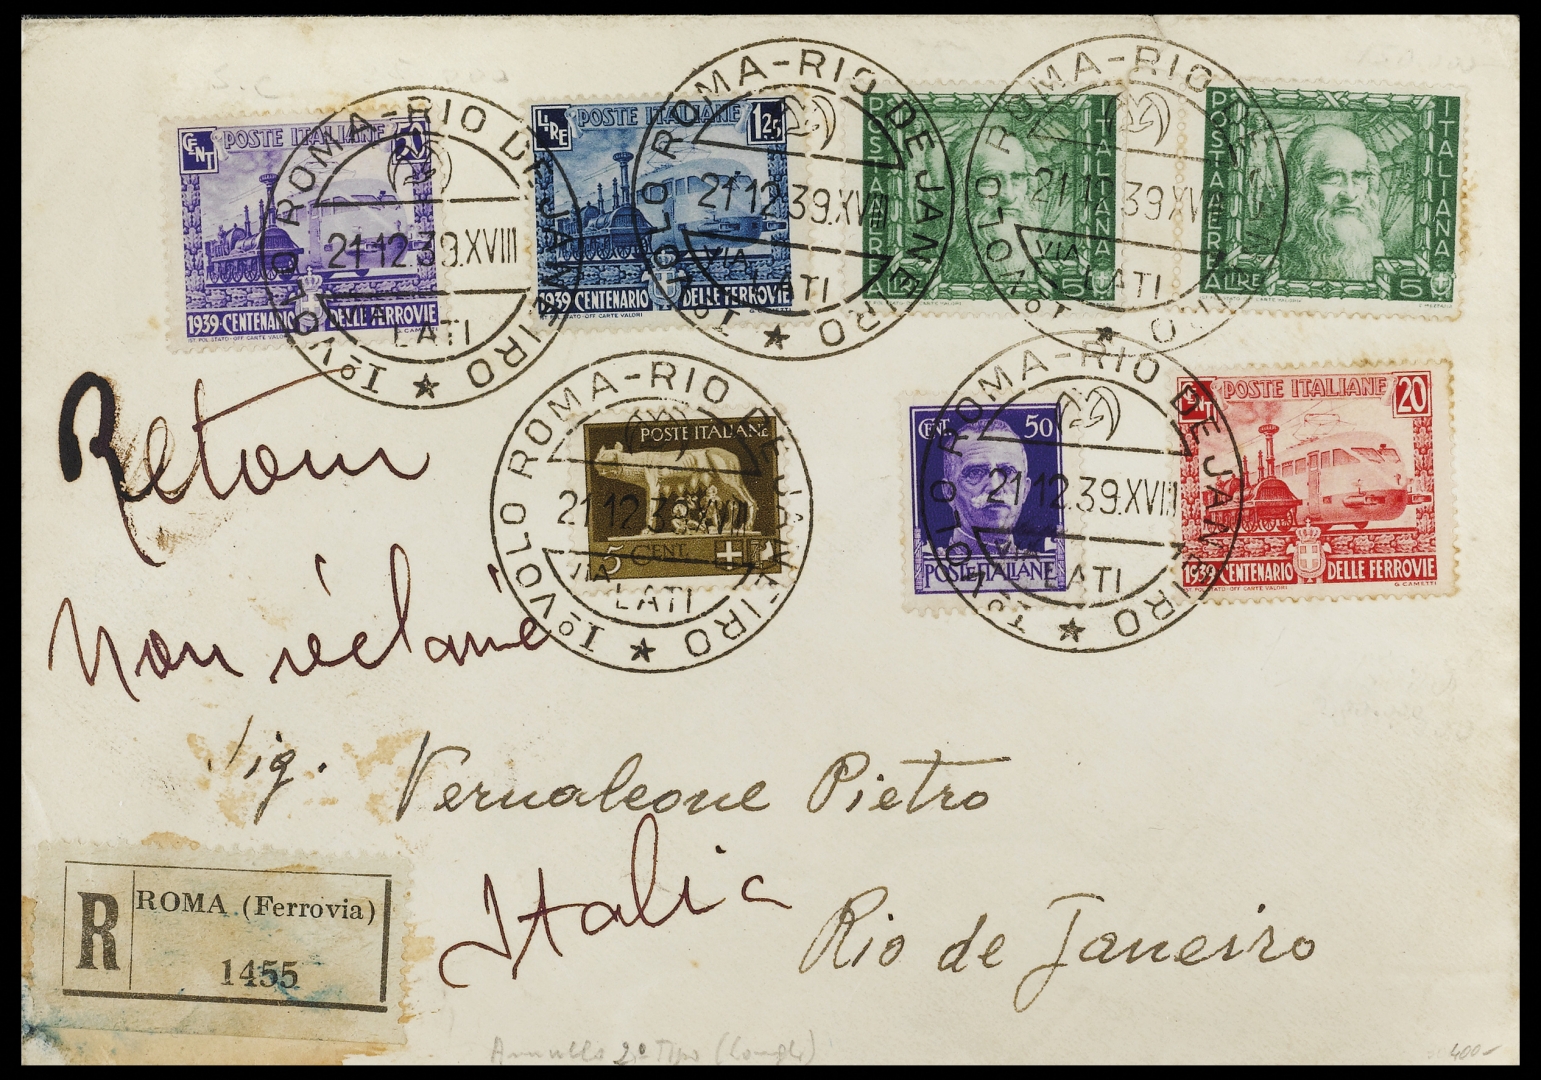 CENT POSTE ITALIANE 50
1939 CENTENARIO DELLE FERROVIE
IST. POL. STATO-OFF. CARTE VALORI G. CAMETTI
LIRE POSTE ITALIANE 1,25
1939 CENTENARIO DELLE FERROVIE
IST. POL. STATO-OFF. CARTE VALORI
POSTA AEREA ITALIANA
LIRE 5
POSTA AEREA ITALIANA
LIRE 5
I° VOLO ROMA-RIO DE JANEIRO ★
21.12.39.XVIII
VIA
LATI
I° VOLO ROMA-RIO DE JANEIRO ★
21.12.39.XVIII
VIA
LATI
I° VOLO ROMA-RIO DE JANEIRO ★
21.12.39.XVIII
VIA
LATI
POSTE ITALIANE
5 CENT
I° VOLO ROMA-RIO DE JANEIRO ★
21.12.39.XVIII
VIA
LATI
CENT 50
POSTE ITALIANE
I° VOLO ROMA-RIO DE JANEIRO ★
21.12.39.XVIII
VIA
LATI
CENT POSTE ITALIANE 20
1939 CENTENARIO DELLE FERROVIE
IST. POL. STATO-OFF. CARTE VALORI G. CAMETTI
Retour
non réclamé
Sig. Vernaleone Pietro
Italia
Rio de Janeiro
R ROMA (Ferrovia)
1455
Annullo 2° Tipo (Longhi)
400-